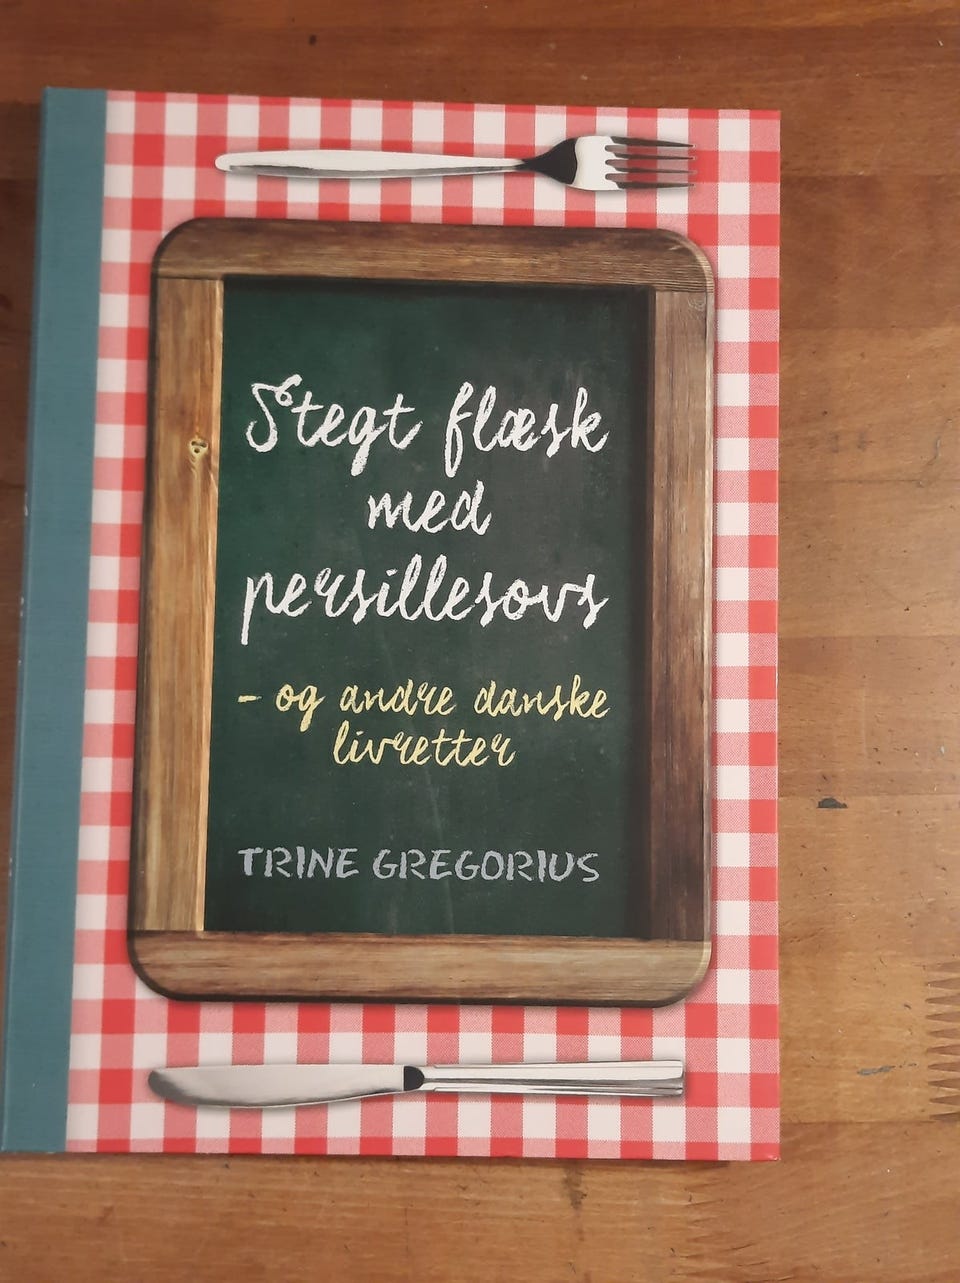 Stegt flæsk
med
persillesovs
- og andre danske
livretter
TRINE GREGORIUS